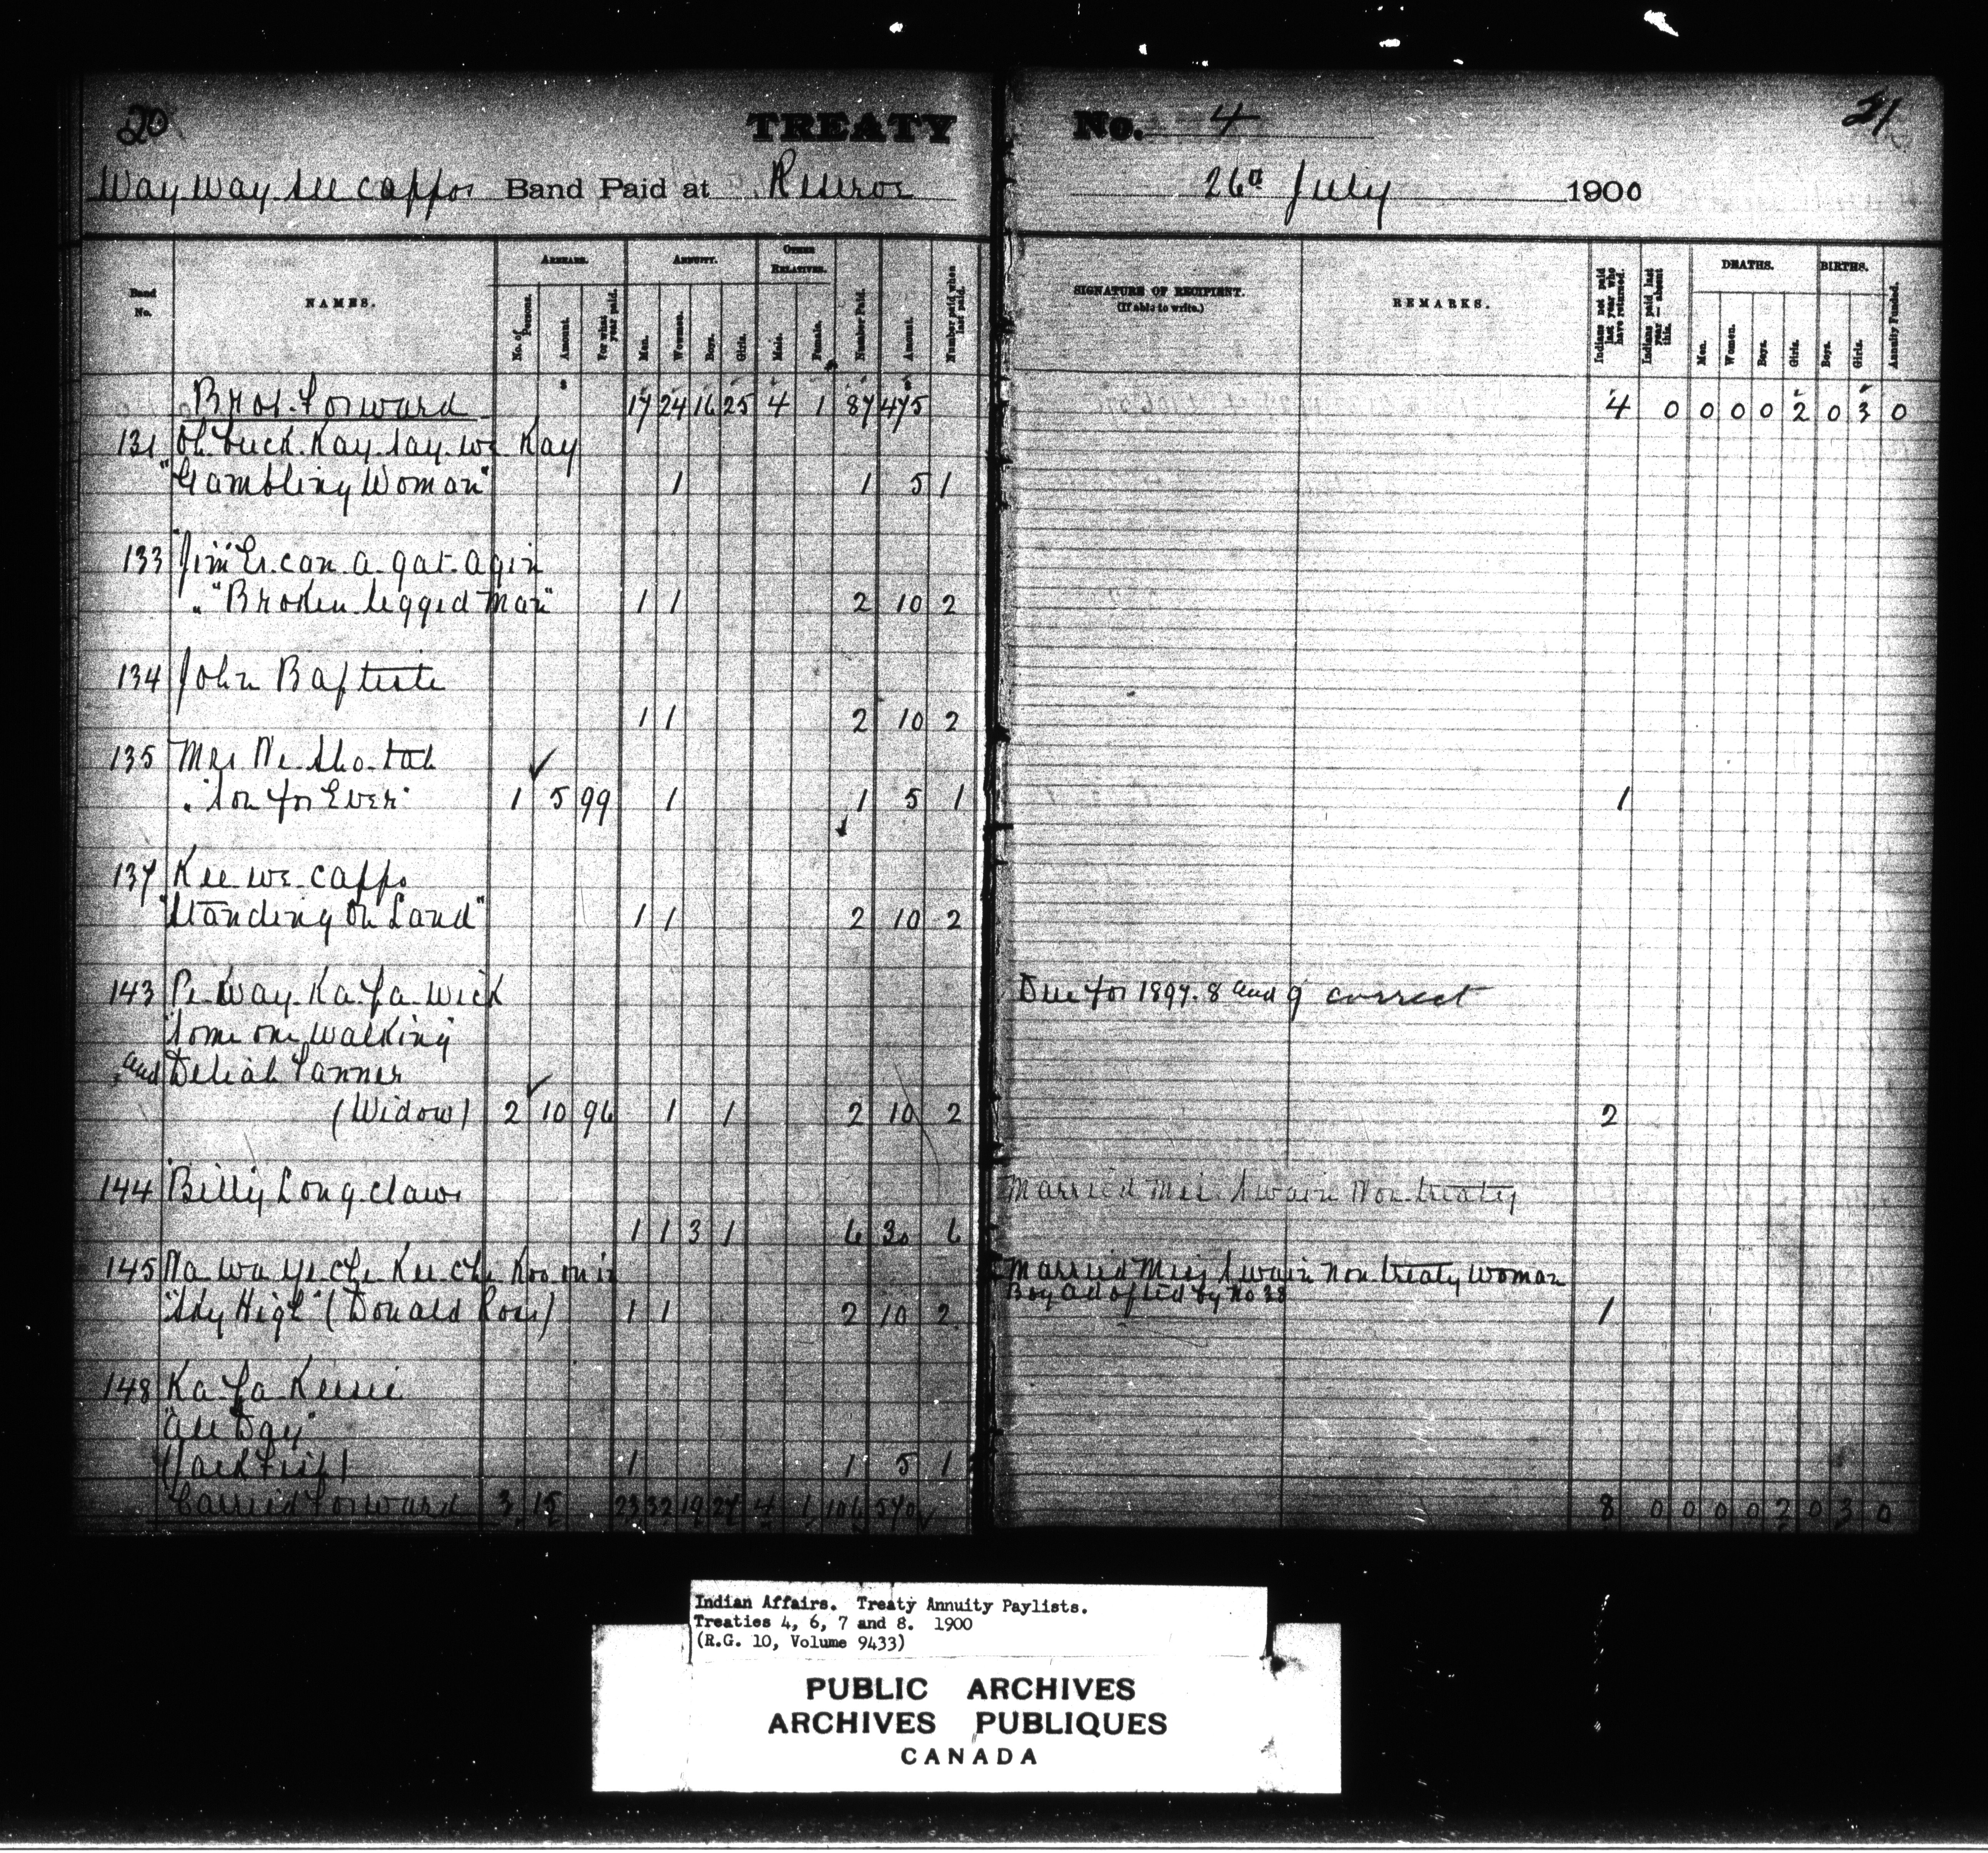 20 TREATY No. 4 21
Way way see cappos Band Paid at Reserve 26th July 1900
Band No. NAMES. ARREARS. ANNUITY. OTHER RELATIVES. Number Paid. Amount. Number paid when last paid. SIGNATURE OF RECIPIENT. (If able to write.) REMARKS. Indians not paid last year who have returned. Indians paid last year — absent this. DEATHS. BIRTHS. Annuity Funded.
No. of Persons. Amount. For what year paid. Men. Women. Boys. Girls. Male. Female. Men. Women. Boys. Girls. Boys. Girls.
Brot. Forward 17 24 16 25 4 1 87 475 4 0 0 0 0 2 0 3 0
131 Oh. tuck. Kay. say. we. Kay
"Gambling Woman" 1 1 5 1
133 "Jim" Es. can. a. gat. agin
" "Broken legged Man" 1 1 2 10 2
134 John Baptiste
1 1 2 10 2
135 Mrs Ne. sho. tah
" "Son for Ever" 1 5 99 1 1 5 1 1
137 Kee. we. cappo
"Standing on Land" 1 1 2 10 2
143 Pe. way. Ka. pa. wick Due for 1897. 8 and 9 correct
"Some one walking"
and Deliah Tanner
(Widow) 2 10 96 1 1 2 10 2 2
144 Billy Long claws Married Mrs. Swain Non treaty
1 1 3 1 6 30 6
145 Na. wa. ye. che. Kee. che. Koo. mi Married Miss Swain non treaty woman
"Sky High" (Donald Ross) 1 1 2 10 2 Boy adopted by No 38 1
148 Ka. pa. Keesic
"All Day"
(Jack Fish) 1 1 5 1
Carried Forward 3 15 23 32 19 27 4 1 106 570 8 0 0 0 0 2 0 3 0
Indian Affairs. Treaty Annuity Paylists.
Treaties 4, 6, 7 and 8. 1900
(R.G. 10, Volume 9433)
PUBLIC ARCHIVES
ARCHIVES PUBLIQUES
CANADA